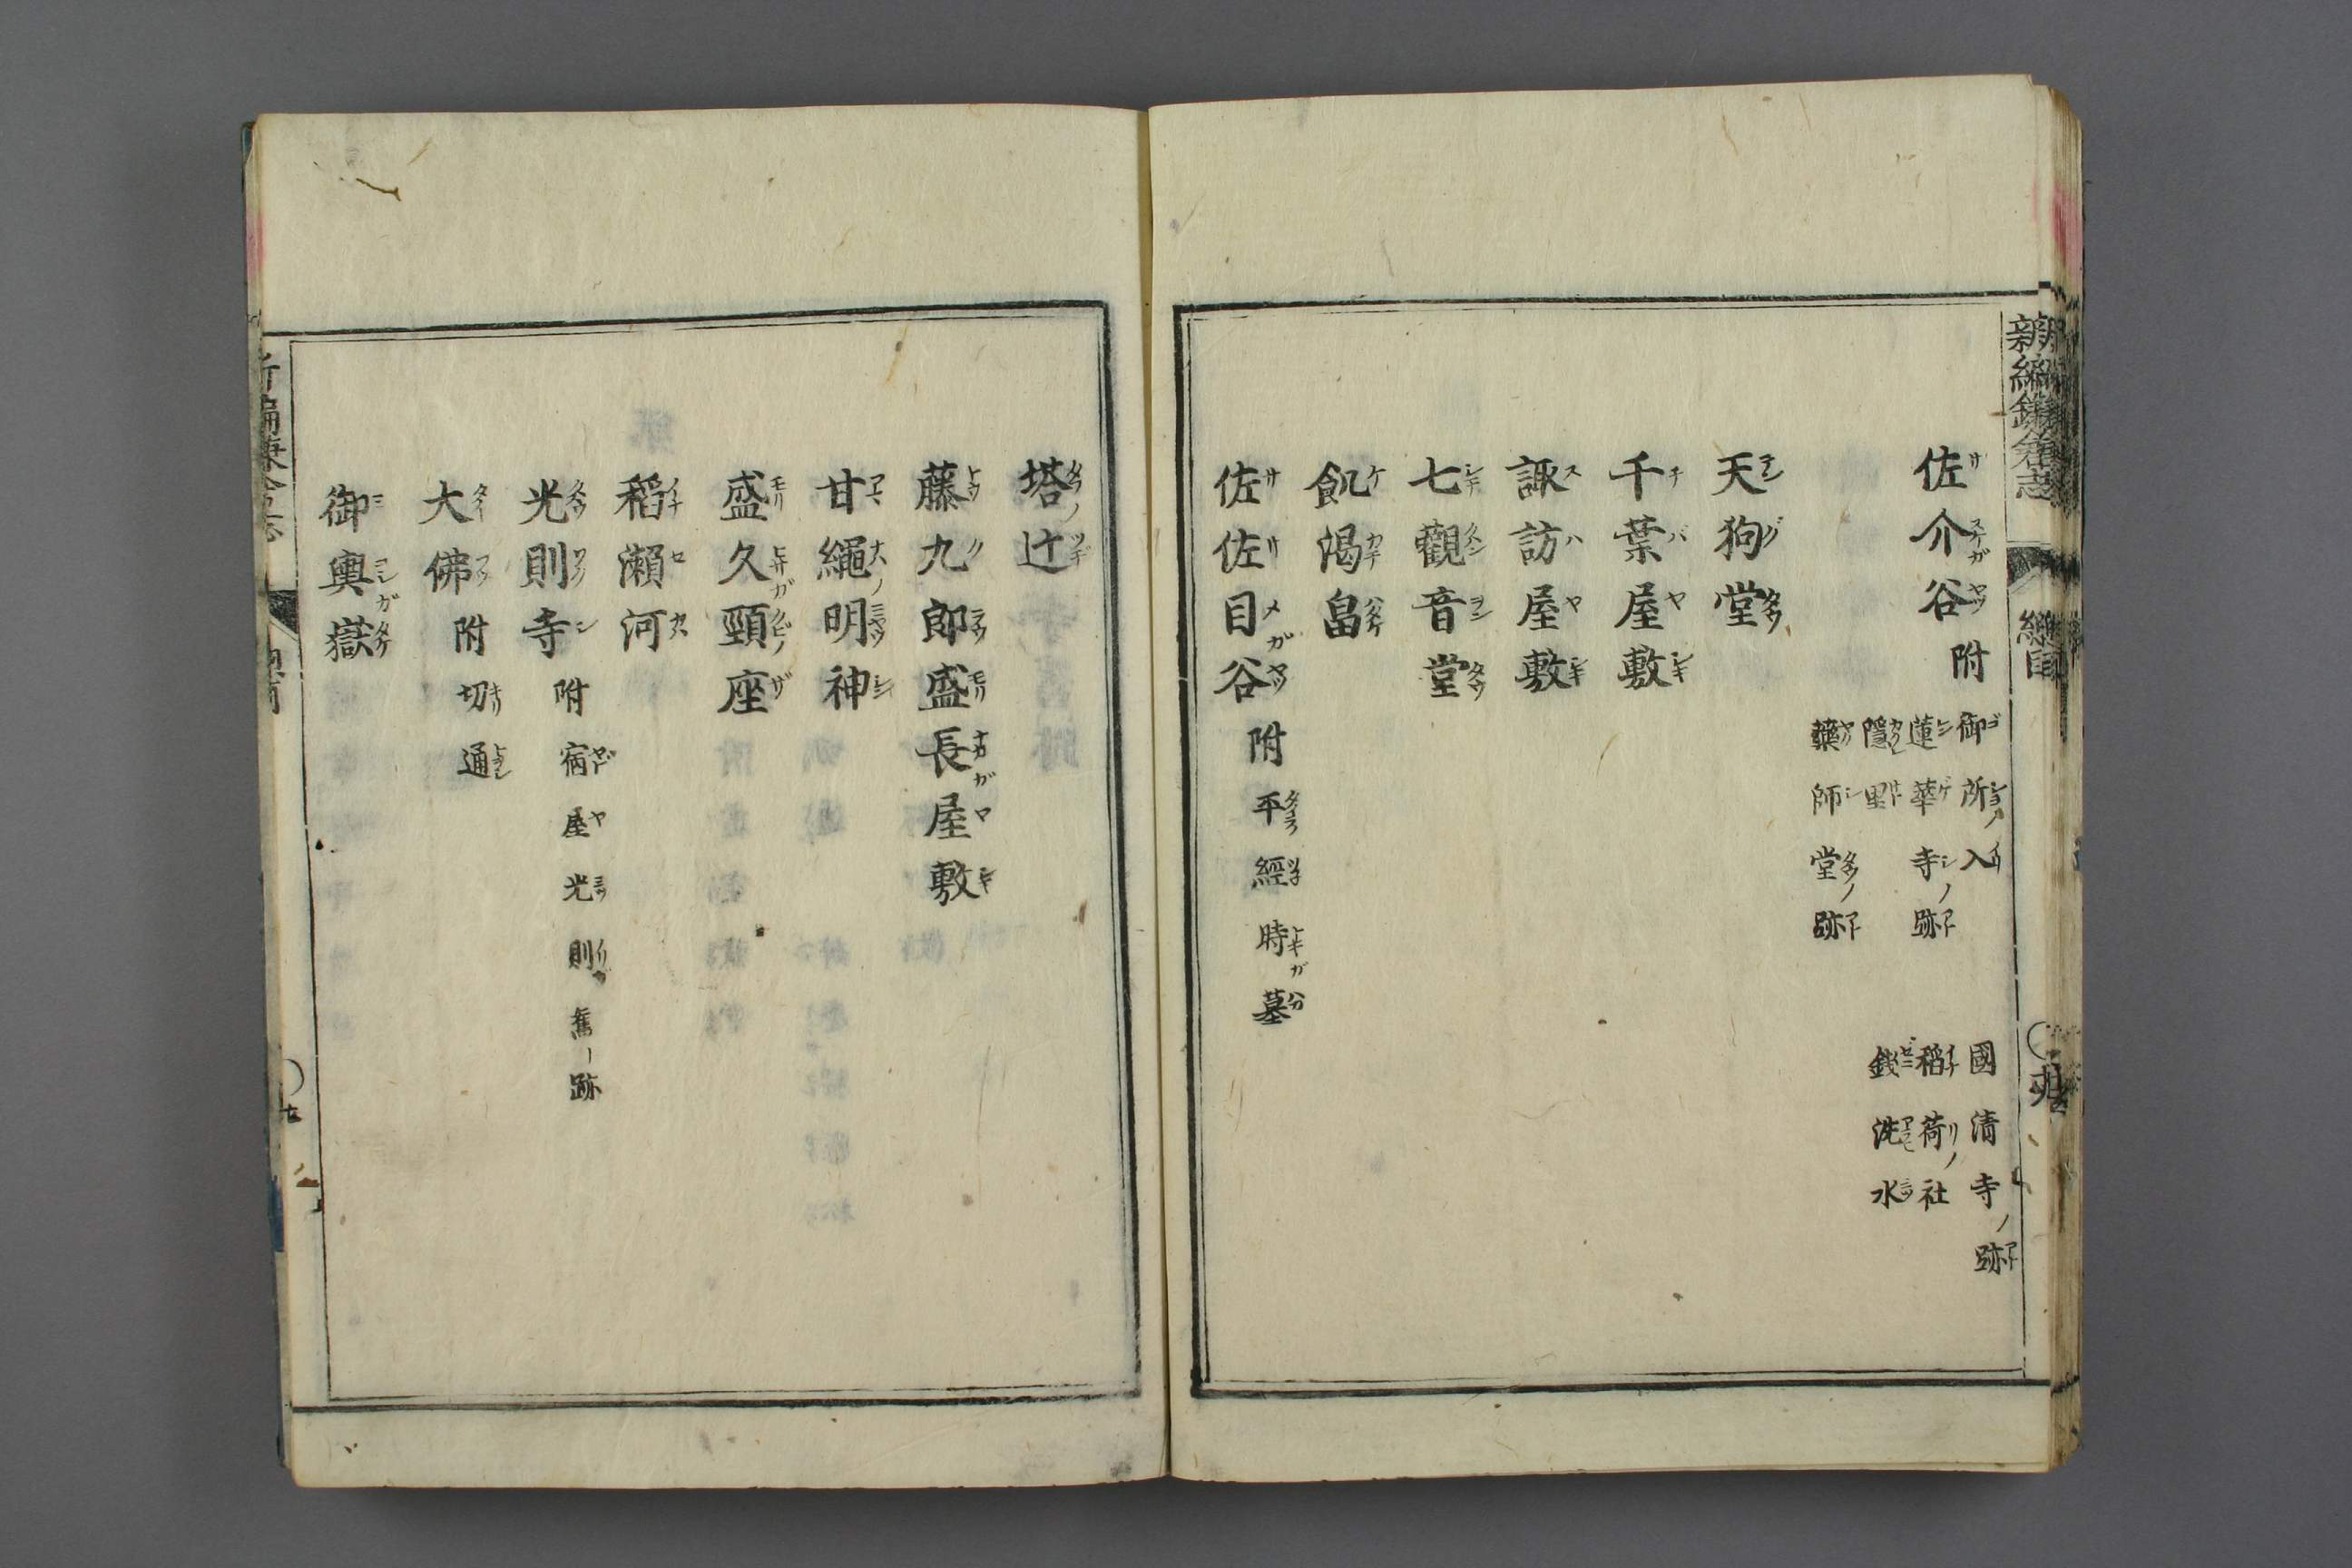 新編鎌倉志
總目
佐介谷附
御所入
國清寺ノ跡
蓮華寺ノ跡
稻荷ノ社
隱里
錢洗水
藥師堂ノ跡
天狗堂
千葉屋敷
諏訪屋敷
七觀音堂
飢渇畠
佐佐目谷附平經時墓
塔辻
藤九郎盛長屋敷
甘繩明神
盛久頸座
稻瀨河
光則寺附宿屋光則舊跡
大佛附切通
御輿嶽